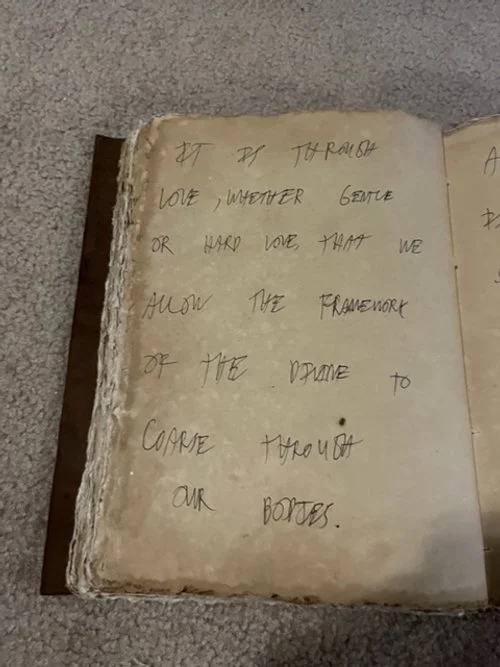 IT IS THROUGH
LOVE, WHETHER GENTLE
OR HARD LOVE, THAT WE
ALLOW THE FRAMEWORK
OF THE DIVINE TO
COARSE THROUGH
OUR BODIES.
A
IS